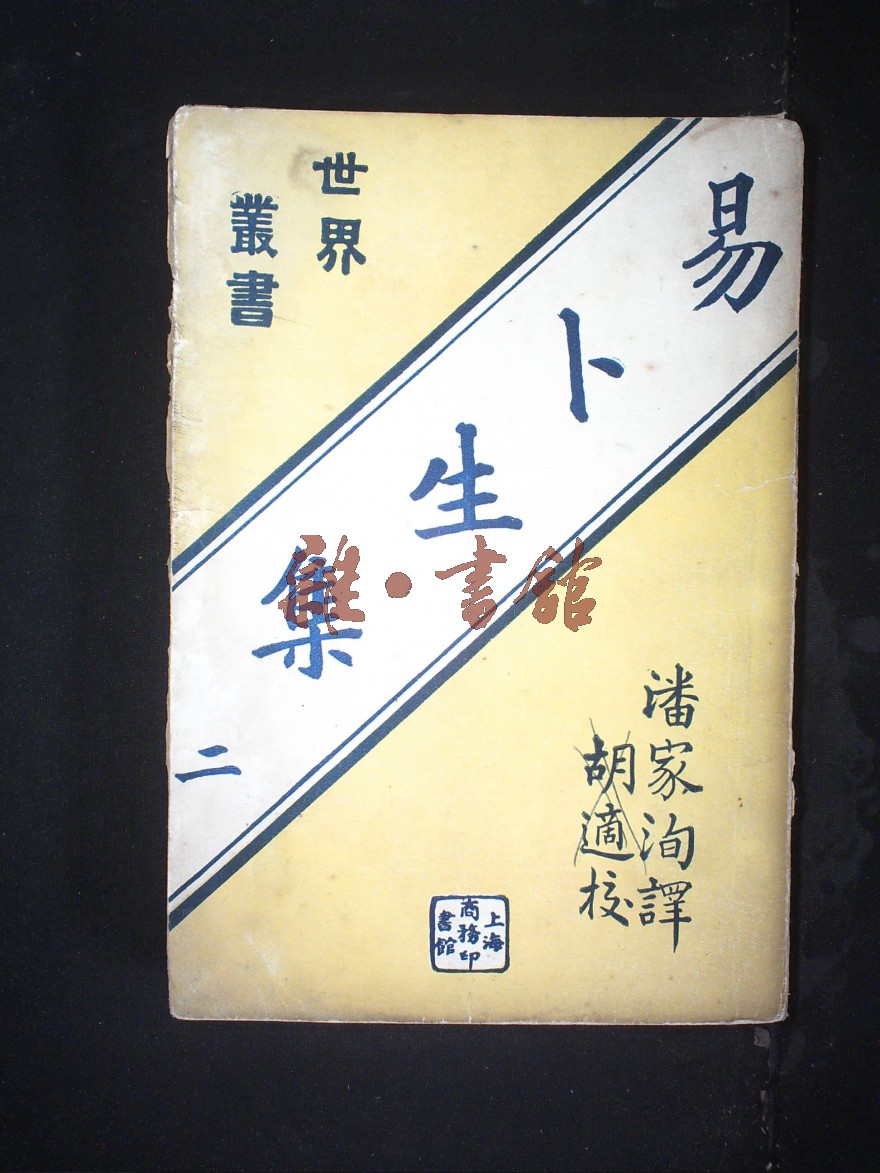 世界
叢書
易卜生集
二
潘家洵譯
胡適校
上海
商務印
書館
雒•書館